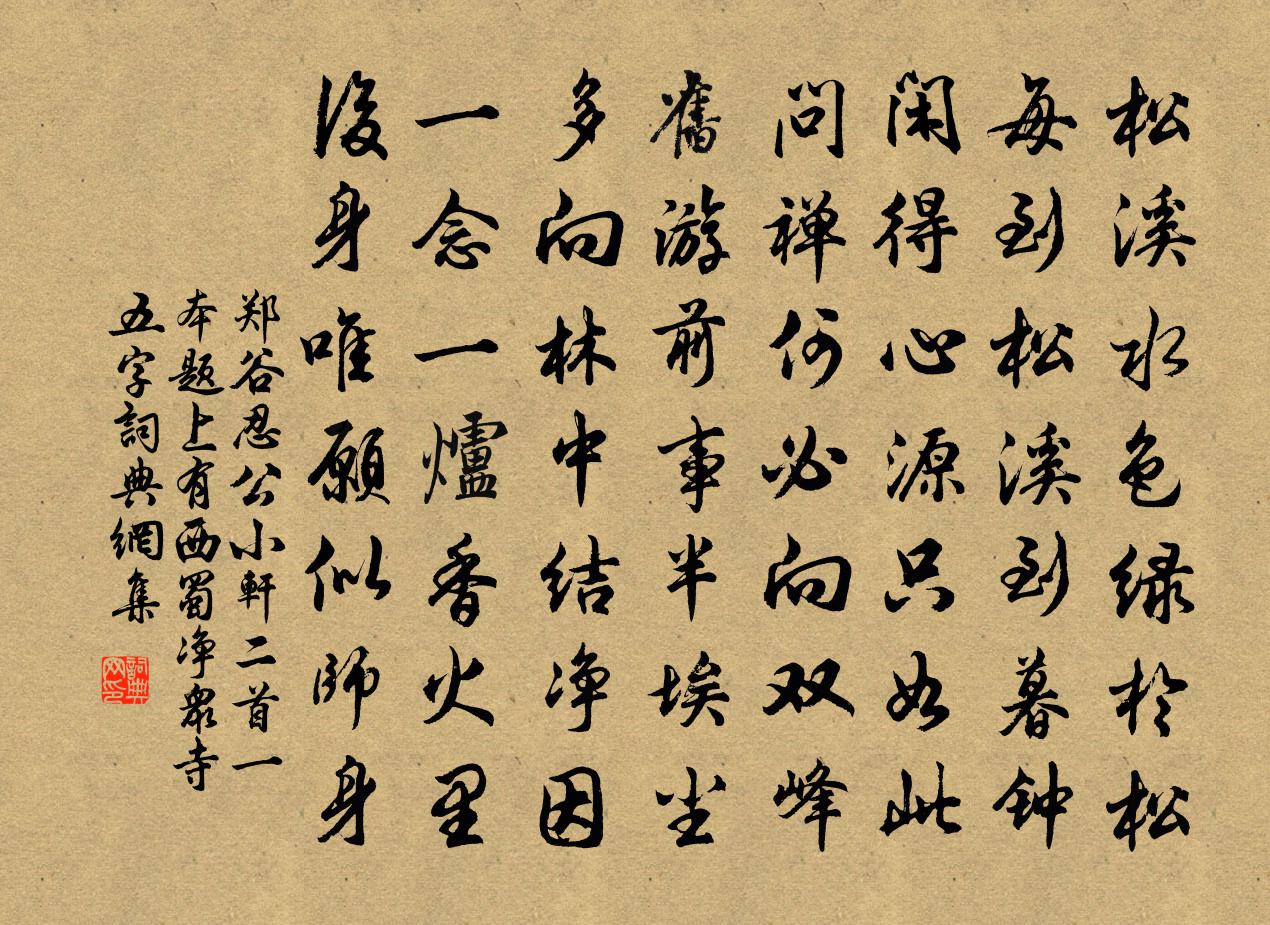 松溪水色绿於松
每到松溪到暮钟
闲得心源只如此
问禅何必向双峰
舊游前事半埃尘
多向林中结净因
一念一爐香火里
後身唯願似师身
郑谷忍公小軒二首一
本题上有西蜀净衆寺
五字詞典網集
詞典网印